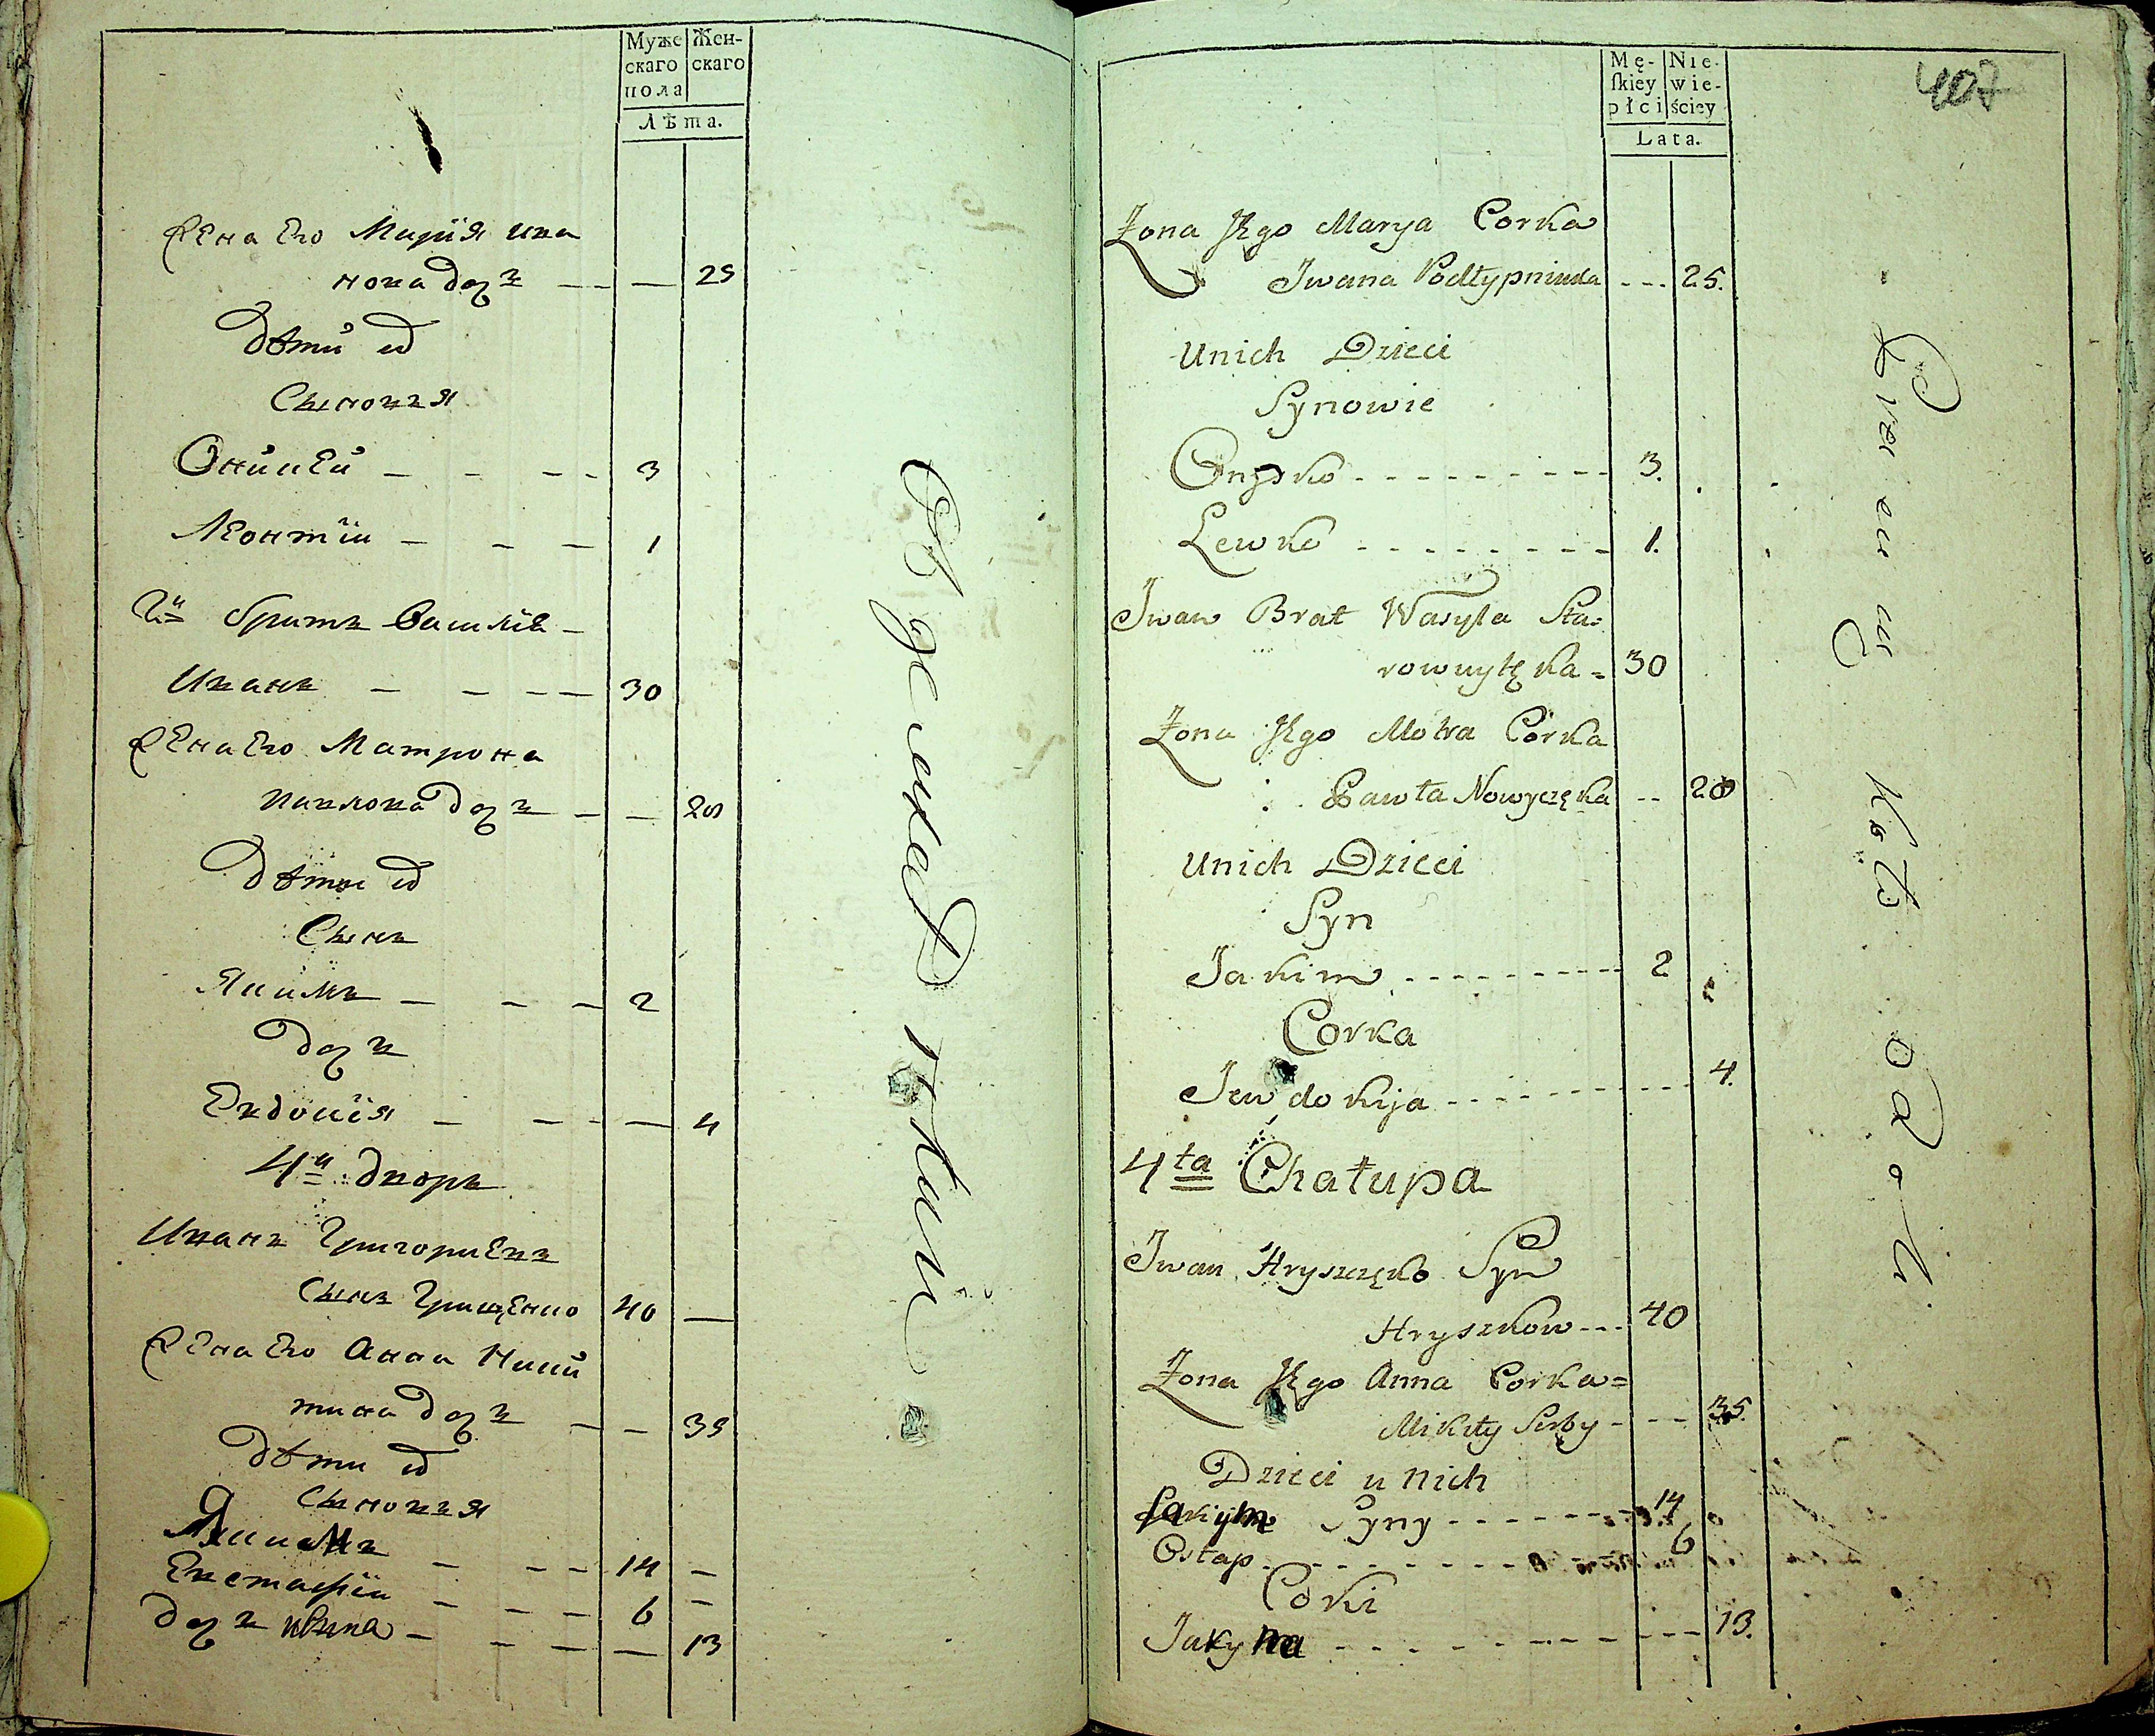 Муже
скаго
пола
Жен-
скаго
Лѣта.
Жена Его Марїя ива
нова дочь — — — 25
дѣти их
Сыновья
Онисей — — — 3
Леонтїи — — — 1
2й братъ Василїя —
Иванъ — — — — 30
Жена Его Матрона
павлова дочь — — 20
дѣти их
Сынъ
Якимъ — — — 2
дочь
Евдокїя — — — — 4
4й дворъ
Иванъ Григорьевъ
сынъ Грищенко 40 —
Жена Его Анна Ники
тина дочь — — 35
дѣти их
сыновья
Якимъ — — — 14 —
Евстафїи — — — 6 —
дочь — — — — 13
Mę-
skiey
płci
Nie-
wie-
ściey
Lata.
407
Zona Jego Marya Corka
Jwana Podłypniuka - - - 25.
Unich Dzieci
Synowie
Onysko - - - - - - - - - 3.
Lewko - - - - - - - - 1.
Jwan Brat Wasyla Sta=
rownytęka = 30
Zona Jego Motra Corka
Pawła Nowyczęka - - 20
Unich Dzieci
Syn
Jakim - - - - - - - - - 2
Corka
Jewdokija - - - - - - - - - 4.
4ta Chałupa
Jwan Hryszczęko Syn
Hryszkow - - - 40
Zona Jego Anna Corka =
Mikity Serby - - - 35.
Dzieci u nich
Jakiym Syny - - - - - - 14
Ostap - - - - - - - - 6
Corki
Jakyma - - - - - - - - - 13.